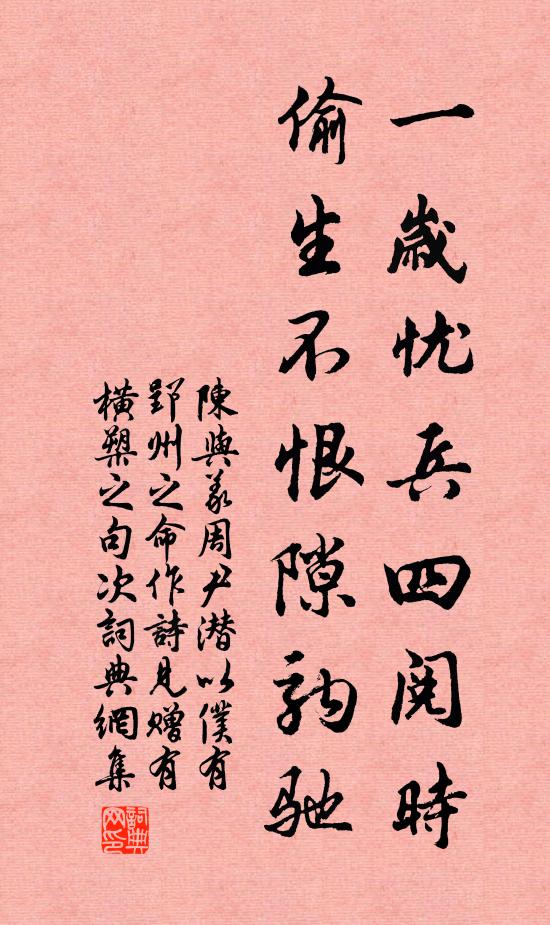 一歲憂兵四閱時
偷生不恨隙駒馳
陳與義周尹潛以僕有
郢州之命作詩見贈有
橫槊之句次詞典網集
詞典
网印